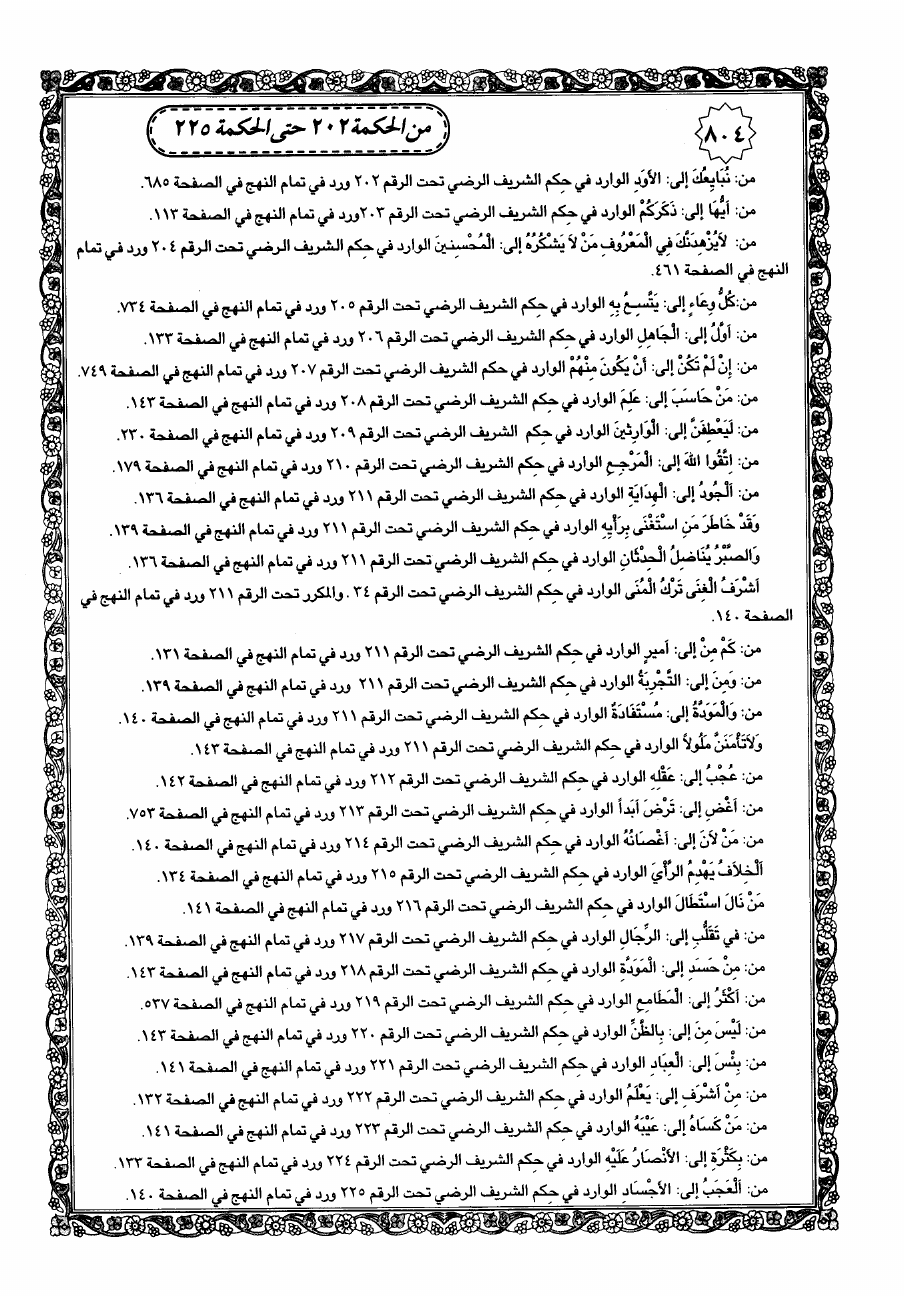 ٨٠٤
من الحكمة ٢٠٢ حتى الحكمة ٢٢٥
من: نُبَايِعُكَ إلى: الأَوَدِ الوارد في حِكم الشريف الرضي تحت الرقم ٢٠٢ ورد في تمام النهج في الصفحة ٦٨٥.
من: أَيُّهَا إلى: ذَكَرَكُمْ الوارد في حِكم الشريف الرضي تحت الرقم ٢٠٣ورد في تمام النهج في الصفحة ١١٣.
من: لاَيُزْهِدَنَّكَ فِي الْمَعْرُوفِ مَنْ لاَ يَشْكُرُهُ إلى: الْمُحْسِنينَ الوارد في حِكم الشريف الرضي تحت الرقم ٢٠٤ ورد في تمام
النهج في الصفحة ٤٦١.
من:كُلُّ وِعَاءٍ إلى: يَتَّسِعُ بِهِ الوارد في حِكم الشريف الرضي تحت الرقم ٢٠٥ ورد في تمام النهج في الصفحة ٧٣٤.
من: أَوَّلُ إلى: الْجَاهِلِ الوارد في حِكم الشريف الرضي تحت الرقم ٢٠٦ ورد في تمام النهج في الصفحة ١٣٣.
من: إِنْ لَمْ تَكُنْ إلى: أَنْ يَكُونَ مِنْهُمْ الوارد في حكم الشريف الرضي تحت الرقم ٢٠٧ ورد في تمام النهج في الصفحة ٧٤٩.
من: مَنْ حَاسَبَ إلى: عَلِمَ الوارد في حِكم الشريف الرضي تحت الرقم ٢٠٨ ورد في تمام النهج في الصفحة ١٤٣.
من: لَيَعْطِفَنَّ إلى: الْوَارِثينَ الوارد في حِكم الشريف الرضي تحت الرقم ٢٠٩ ورد في تمام النهج في الصفحة ٢٣٠.
من: اِتَّقُوا اللهَ إلى: الْمَرْجِعِ الوارد في حِكم الشريف الرضي تحت الرقم ٢١٠ ورد في تمام النهج في الصفحة ١٧٩.
من: اَلْجُودُ إلى: الْهِدَايَةِ الوارد في حِكم الشريف الرضي تحت الرقم ٢١١ ورد في تمام النهج في الصفحة ١٣٦.
وَقَدْ خَاطَرَ مَنِ اسْتَغْنَى بِرَأْيِهِ الوارد في حِكم الشريف الرضي تحت الرقم ٢١١ ورد في تمام النهج في الصفحة ١٣٩.
وَالصَّبْرُ يُنَاضِلُ الْحِدْثَانِ الوارد في حِكم الشريف الرضي تحت الرقم ٢١١ ورد في تمام النهج في الصفحة ١٣٦.
أَشْرَفُ الْغِنَى تَرْكُ الْمُنَى الوارد في حِكم الشريف الرضي تحت الرقم ٣٤ . والمكرر تحت الرقم ٢١١ ورد في تمام النهج في
الصفحة ١٤٠.
من: كَمْ مِنْ إلى: أَميرٍ الوارد في حِكم الشريف الرضي تحت الرقم ٢١١ ورد في تمام النهج في الصفحة ١٣١.
من: وَمِنَ إلى: التَّجْرِبَةُ الوارد في حِكم الشريف الرضي تحت الرقم ٢١١ ورد في تمام النهج في الصفحة ١٣٩.
من: وَالْمَوَدَّةُ إلى: مُسْتَفَادَةٌ الوارد في حِكم الشريف الرضي تحت الرقم ٢١١ ورد في تمام النهج في الصفحة ١٤٠.
وَلاَتَأْمَنَنَّ مَلُولاً الوارد في حِكم الشريف الرضي تحت الرقم ٢١١ ورد في تمام النهج في الصفحة ١٤٣.
من: عُجْبُ إلى: عَقْلِهِ الوارد في حِكم الشريف الرضي تحت الرقم ٢١٢ ورد في تمام النهج في الصفحة ١٤٢.
من: أَغْضِ إلى: تَرْضَ أَبَداً الوارد في حِكم الشريف الرضي تحت الرقم ٢١٣ ورد في تمام النهج في الصفحة ٧٥٣.
من: مَنْ لاَنَ إلى: أَغْصَانُهُ الوارد في حِكم الشريف الرضي تحت الرقم ٢١٤ ورد في تمام النهج في الصفحة ١٤٠.
اَلْخِلاَفُ يَهْدِمُ الرَّأْيَ الوارد في حِكم الشريف الرضي تحت الرقم ٢١٥ ورد في تمام النهج في الصفحة ١٣٤.
مَنْ نَالَ اسْتَطَالَ الوارد في حِكم الشريف الرضي تحت الرقم ٢١٦ ورد في تمام النهج في الصفحة ١٤١.
من: في تَقَلُّبِ إلى: الرِّجَالِ الوارد في حِكم الشريف الرضي تحت الرقم ٢١٧ ورد في تمام النهج في الصفحة ١٣٩.
من: مِنْ حَسَدِ إلى: الْمَوَدَّةِ الوارد في حِكم الشريف الرضي تحت الرقم ٢١٨ ورد في تمام النهج في الصفحة ١٤٣.
من: أَكْثَرُ إلى: الْمَطَامِعِ الوارد في حِكم الشريف الرضي تحت الرقم ٢١٩ ورد في تمام النهج في الصفحة ٥٣٧.
من: لَيْسَ مِنَ إلى: بِالظَّنِّ الوارد في حِكم الشريف الرضي تحت الرقم ٢٢٠ ورد في تمام النهج في الصفحة ١٤٣.
من: بِئْسَ إلى: الْعِبَادِ الوارد في حِكم الشريف الرضي تحت الرقم ٢٢١ ورد في تمام النهج في الصفحة ١٤١.
من: مِنْ أَشْرَفِ إلى: يَعْلَمُ الوارد في حِكم الشريف الرضي تحت الرقم ٢٢٢ ورد في تمام النهج في الصفحة ١٣٢.
من: مَنْ كَسَاهُ إلى: عَيْبَهُ الوارد في حِكم الشريف الرضي تحت الرقم ٢٢٣ ورد في تمام النهج في الصفحة ١٤١.
من: بِكَثْرَةِ إلى: الأَنْصَارُ عَلَيْهِ الوارد في حِكم الشريف الرضي تحت الرقم ٢٢٤ ورد في تمام النهج في الصفحة ١٣٣.
من: اَلْعَجَبُ إلى: الأَجْسَادِ الوارد في حِكم الشريف الرضي تحت الرقم ٢٢٥ ورد في تمام النهج في الصفحة ١٤٠.